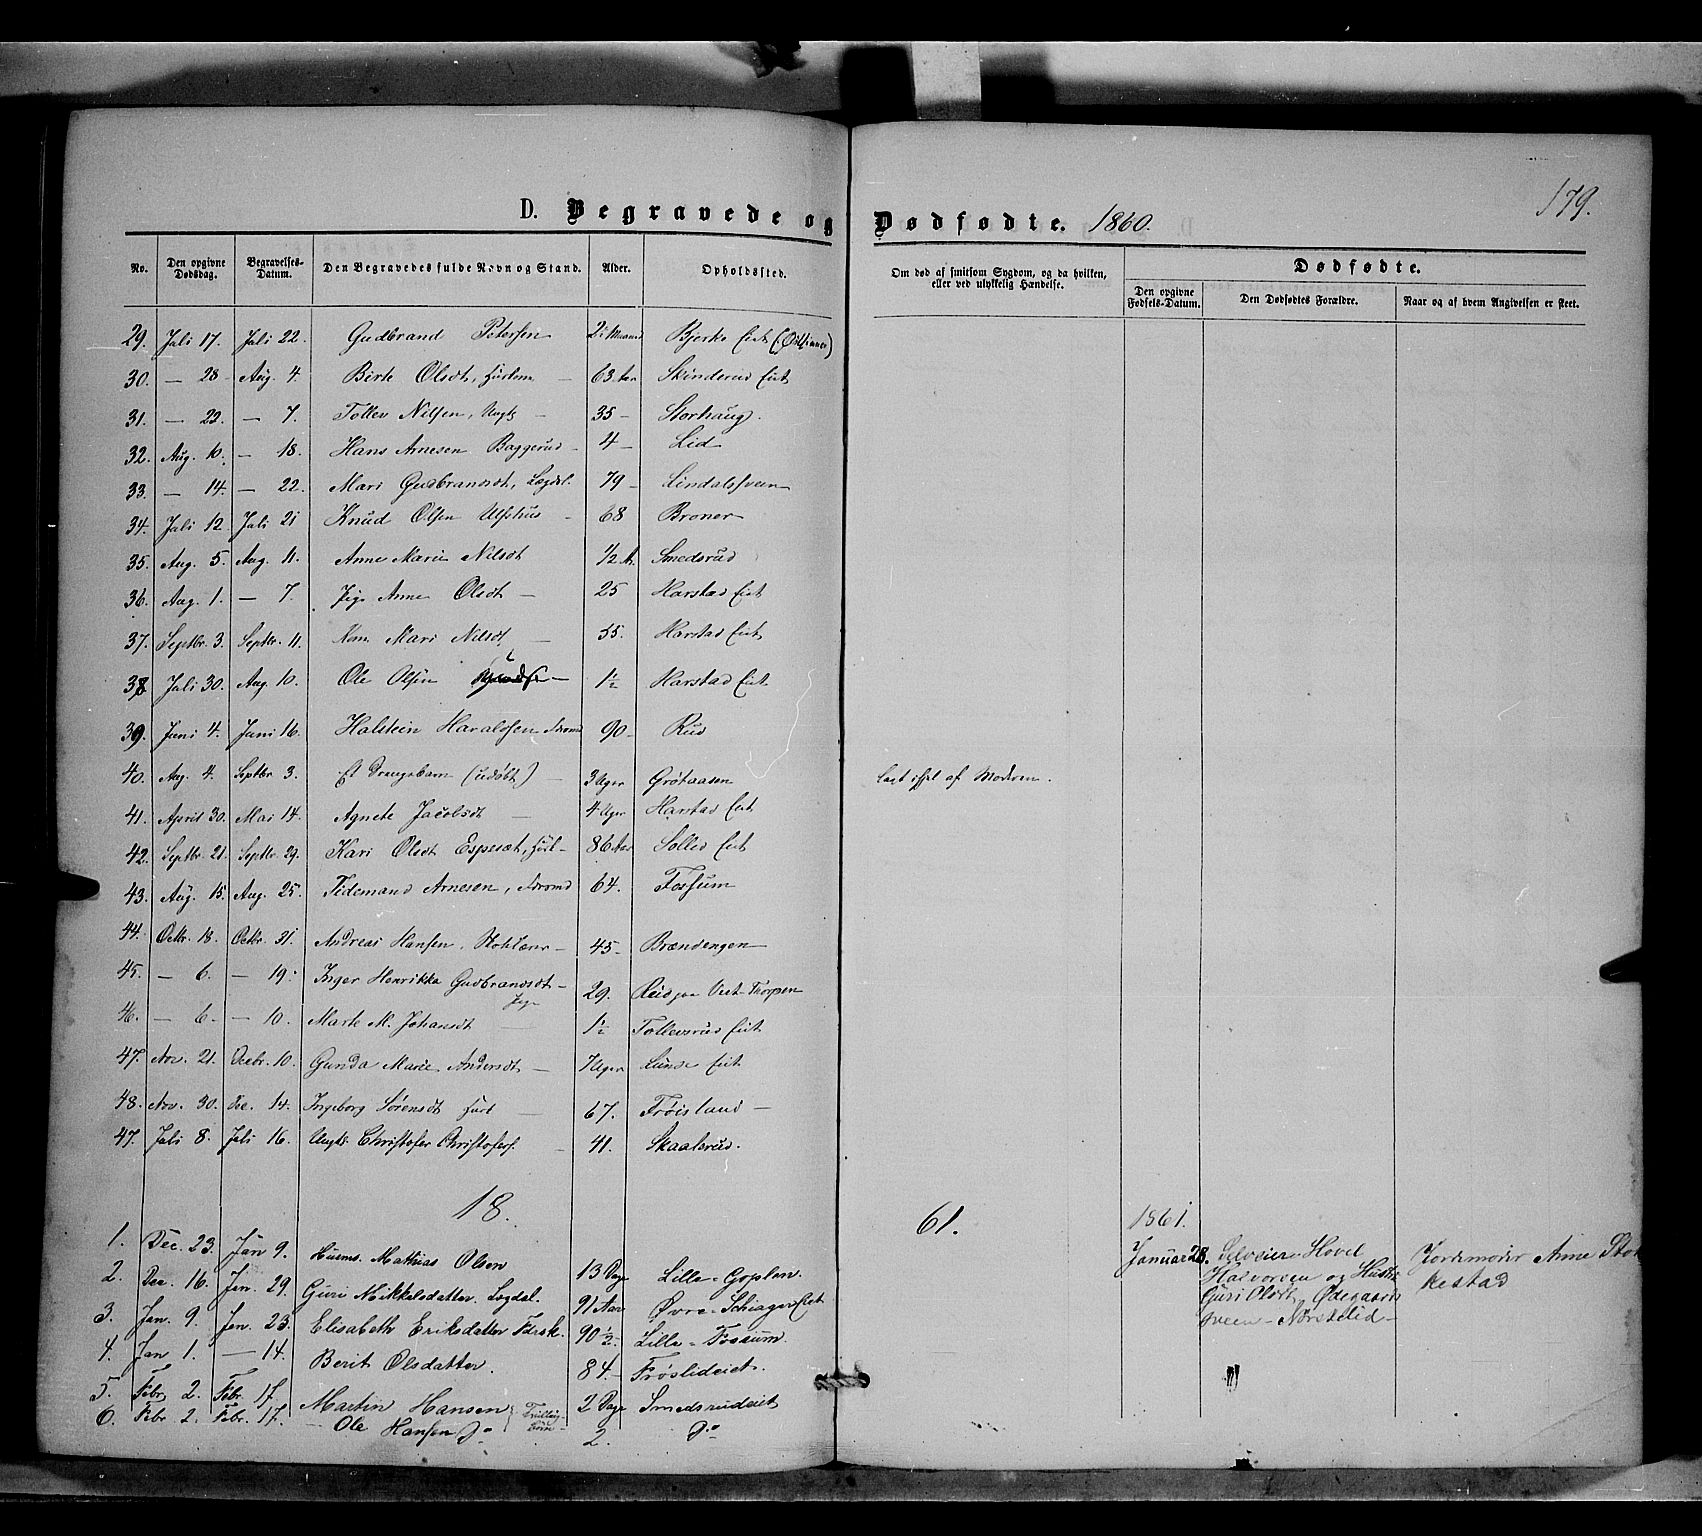 179.
D. Begravede og Dødfødte. 1860.
No. Den opgivne Dødsdag. Begravelses-Datum. Den Begravedes fulde Navn og Stand. Alder. Opholdssted. Om død af smitsom Sygdom, og da hvilken, eller ved ulykkelig Hændelse. Dødfødte.
Den opgivne Fødsels-Datum. Den Dødfødtes Forældre. Naar og af hvem Angivelsen er skeet.
29. Juli 17. Juli 22. Gudbrand Petersen 2½ Maaned Bjerke Eiet (Østsinnen)
30. — 28 Aug. 4. Birte Olsdt, — 63 Aar Skinderud Eiet
31. — 22. — 7. Tollev Nilsen, Ungk — 35 — Storhaug.
32. Aug. 10. — 18. Hans Arnesen Baggerud — 4 — Lid
33. — 14. — 22. Mari Gudbrandsdt, Lægdsl. 79 — Lindalsveen
34. Juli 12. Juli 21 Knud Olsen Ulfshus — 68 Broner
35. Aug. 5. Aug. 11. Anne Marie Nilsdt ½ A. Smedsrud
36. Aug. 1. — 7. Pige Anne Olsdt — 25 Harstad Eiet
37. Septbr. 3. Septbr. 11. Kone Mari Nilsdt, — 55. Harstad Eiet
38 Juli 30. Aug. 10. Ole Olsen — 1½ Harstad Eiet
39. Juni 4. Juni 16. Halstein Haraldsen 90 — Rud
40. Aug. 4. Septbr 3. Et Drengebarn (udøbt) — 3 Uger Grøtaasen lagt ihjel af Moderen.
41. April 30. Mai 14. Agnete Jacobsdt — 4 Uger Harstad Eiet
42. Septbr. 21. Septbr. 29. Kari Olsdt Espeset, — 86 Aar Sollid Eiet
43. Aug. 15. Aug. 25. Tidemand Arnesen, 64. Fossum
44. Octbr. 18. Octbr. 31. Andreas Hansen, — 45 — Brændengen
45. — 6. — 19. Inger Henrikka Gudbrandsdt — Pige 29. Vest-Thorpen
46. — 6 — — 10. Marte M. Johansdt — 1½ Tollevsrud Eiet
47. Nov. 21. Decbr. 10. Gunda Marie Andersdt — 7 Uger Lunde Eiet
48. Nov. 30. Dec. 14. Ingeborg Sørensdt — 67. Frøisland —
47. Juli 8. Juli 16. Ungk. Christofer Christofers. 41. Skaalsrud.
18. 61. 1861.
1. Dec. 23. Jan 9. Huusm. Mathias Olsen 13 Dage Lille-Goplen. Januar 28. Selveier Hovel Halvorsen og Hustr. Guri Olsdt Ødegaardsveen — Norstelid — Jordemoder Anne Stokkestad
2. Dec. 16. Jan. 29. Guri Mikkelsdatter. Lægdsl. 91 Aar Øvre-Schiager Eiet
3. Jan. 9. Jan. 23. Elisabeth Eriksdatter 90½ — Lille-Fossum.
4. Jan 1. — 14. Berit Olsdatter. 84. — Frøslideiet.
5. Febr. 2. Febr. 17. Martin Hansen 2 Dage Smedsrudeiet
6. Febr 2. Febr. 17. — Ole Hansen Do Tvillingbørn 2. Do